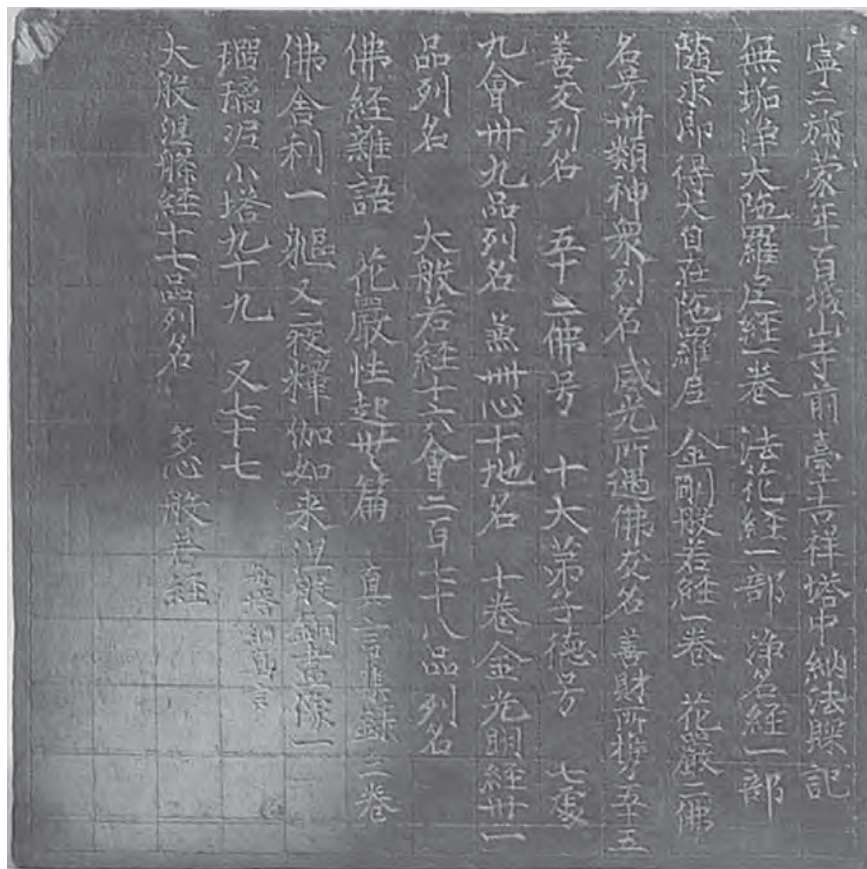 寧二旃蒙年百城山寺前臺吉祥塔中納法賝記
無垢淨大陁羅尼経一卷　法花経一部　淨名経一部
隨求即得大自在陁羅尼　金剛般若経一卷　花嚴二佛
名号卌類神衆列名　威光所遇佛友名　善財所携五十五
善友列名　五十三佛号　十大弟子德号　七處
九會卅九品列名　兼卌心十地名　十卷金光明経卅一
品列名　大般若経十六會二百七十八品列名
佛経雜語　花嚴性起卅篇　真言集錄二卷
佛舍利一軀又二枚釋伽如来涅般銅畫像一
瑠璃泥小塔九十九　又七十七　每塔納真言
大般涅槃経十七品列名　多心般若経